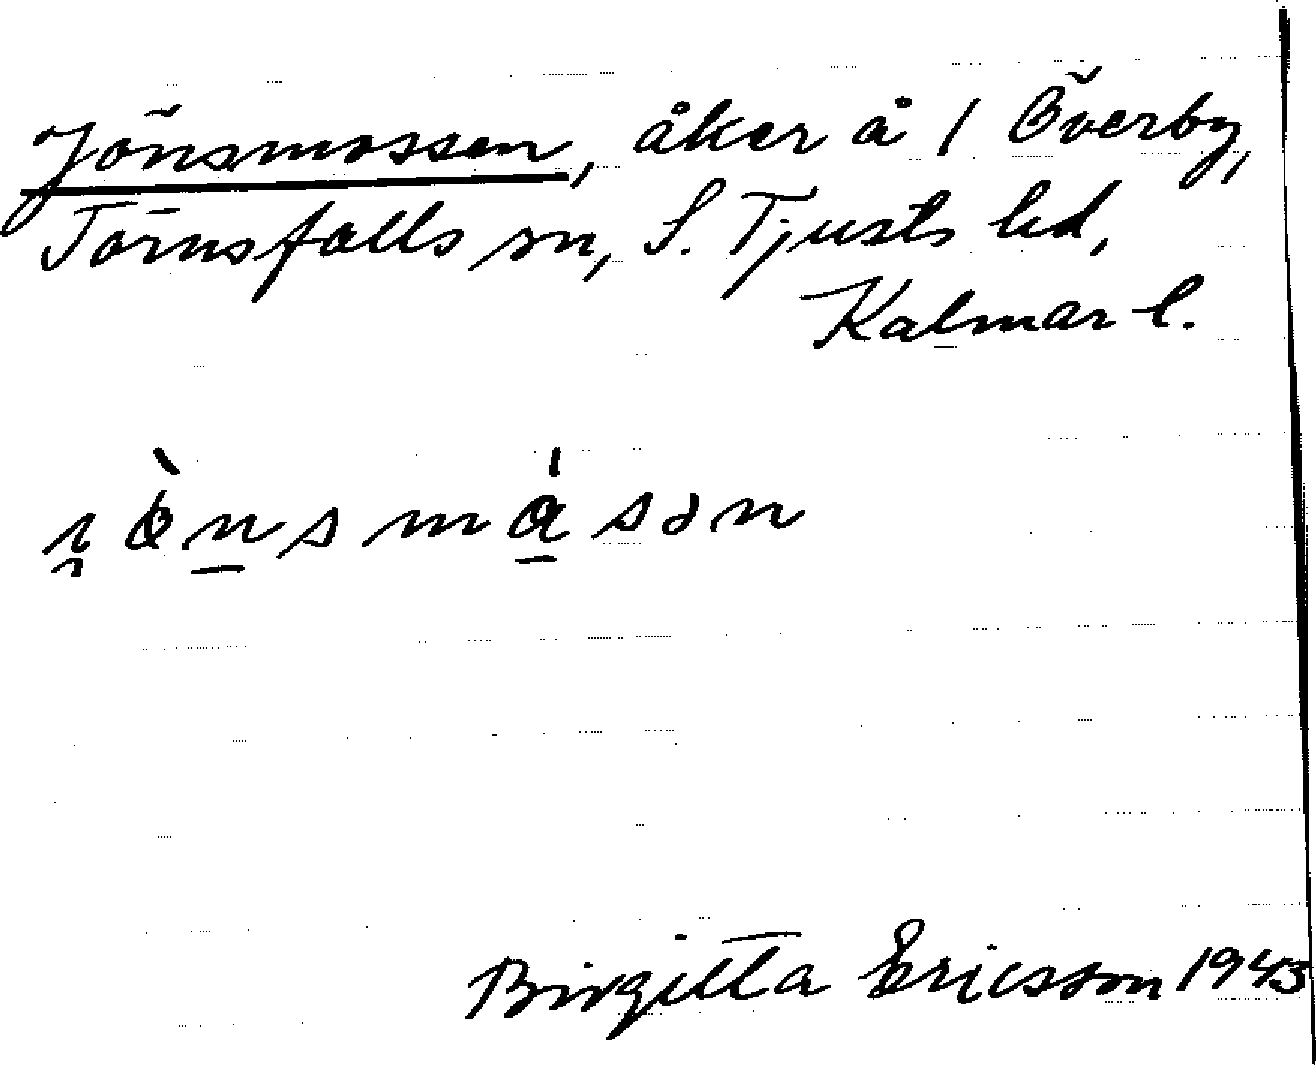 Jönsmossen, åker å 1 Överby,
Törnsfalls sn, S. Tjusts hd,
Kalmar l.
Birgitta Ericsson 1945